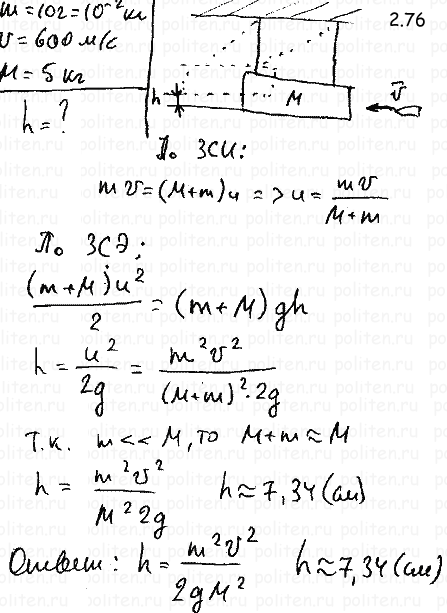 m = 10г = 10⁻² кг
2.76
v = 600 м/с
M = 5 кг
h = ?
h
M
v⃗
По ЗСИ:
mv = (M+m)u => u = mv/(M+m)
По ЗСЭ:
(m+M)u²/2 = (m+M)gh
h = u²/2g = m²v²/((M+m)²·2g)
Т.к. m << M, то M+m ≈ M
h = m²v²/(M²2g) h ≈ 7,34 (см)
Ответ: h = m²v²/(2gM²) h ≈ 7,34 (см)